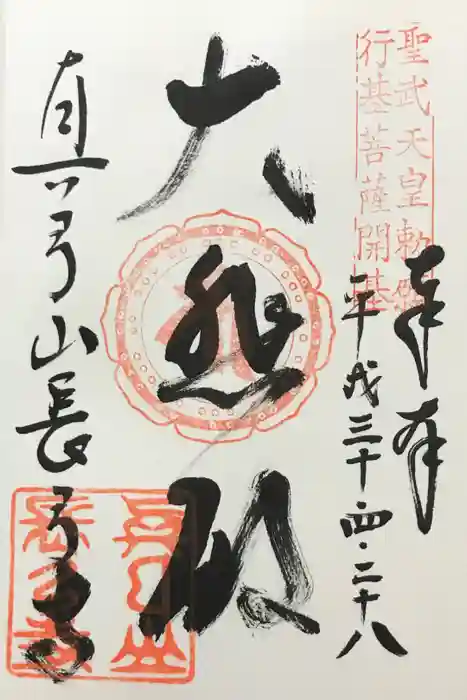 聖武天皇勅願
行基菩薩開基
奉拝
平成三十四・二十八
大悲殿
真弓山長弓寺